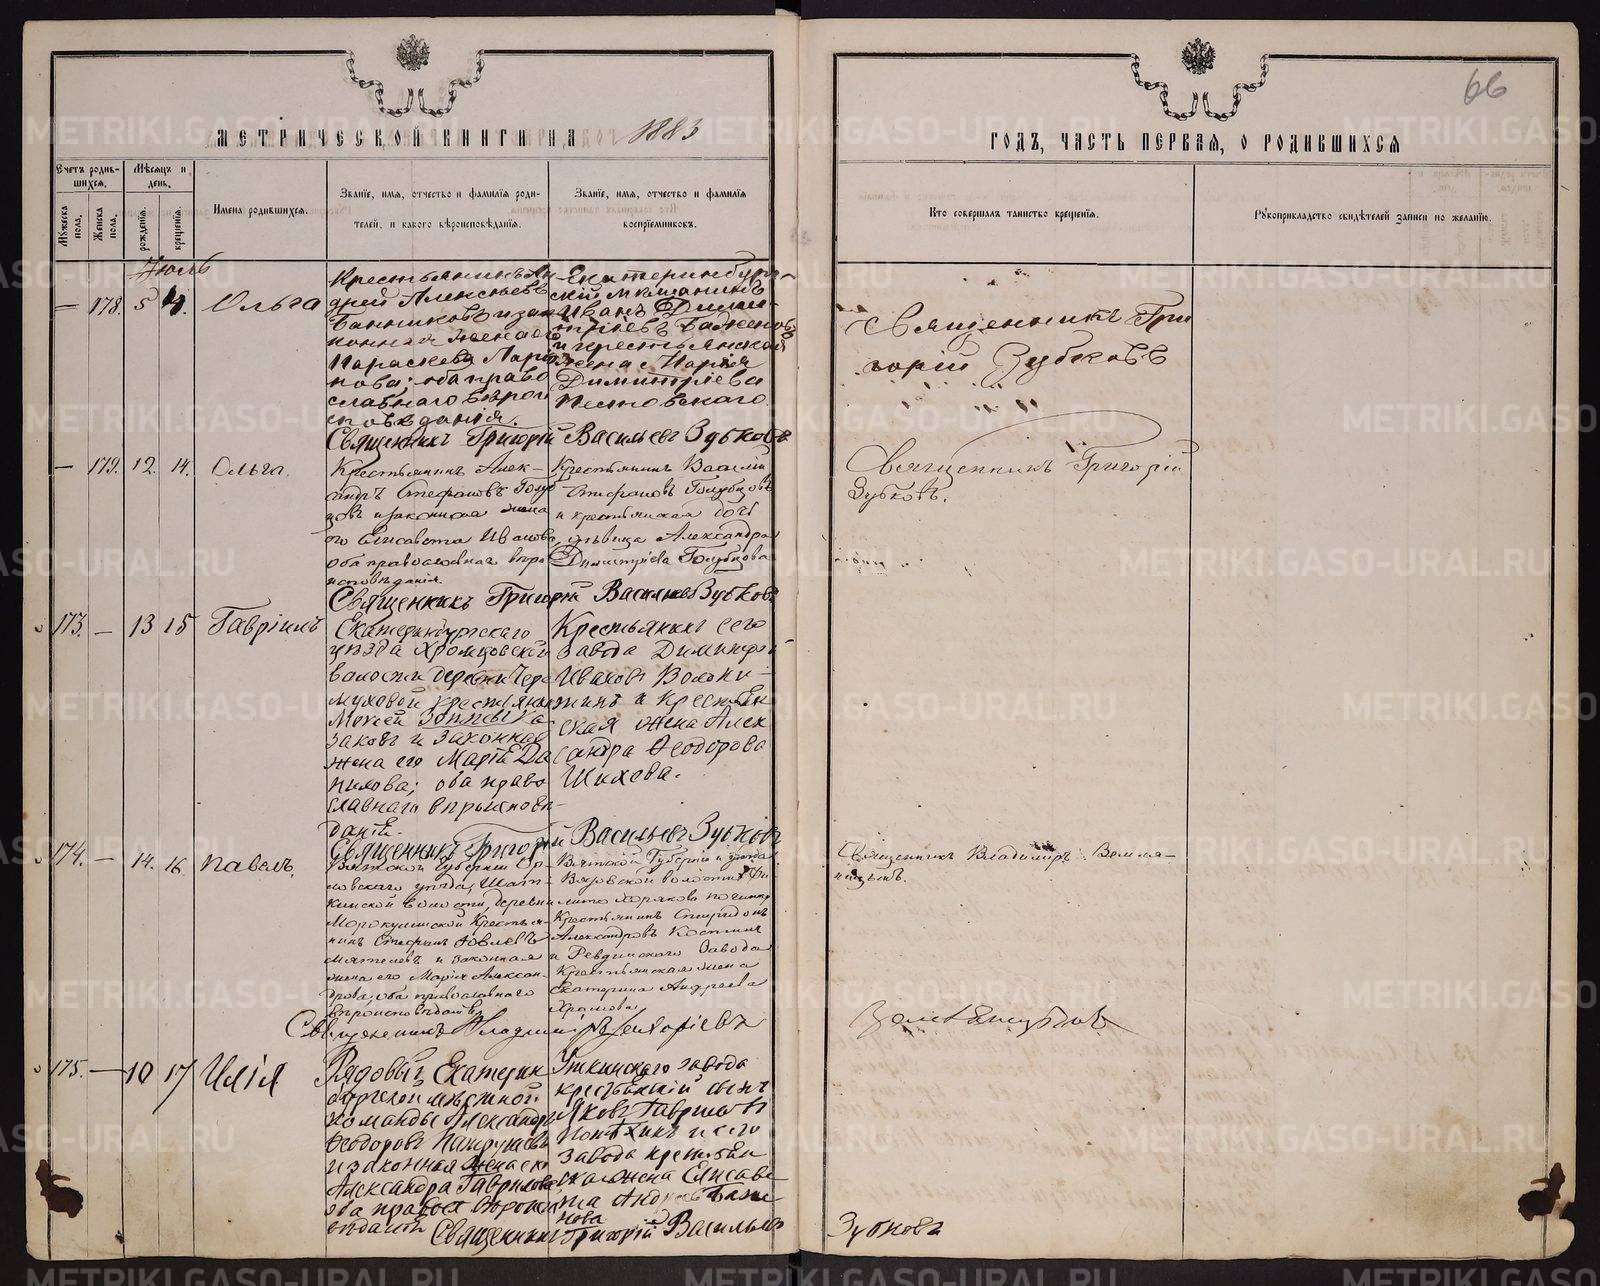 66
МЕТРИЧЕСКОЙ КНИГИ НА 1883
ГОДЪ, ЧАСТЬ ПЕРВАЯ, О РОДИВШИХСЯ
Счетъ родившихся.
Мѣсяцъ и день.
Имена родившихся.
Званіе, имя, отчество и фамилія родителей, и какого вѣроисповѣданія.
Званіе, имя, отчество и фамилія воспріемниковъ.
Кто совершалъ таинство крещенія.
Рукоприкладство свидѣтелей записи по желанію.
Мужеска пола.
Женска пола.
рожденія.
крещенія.
Іюль
— 178. 5 Ольга
Крестьянинъ Ан
дрей Алексѣевъ
Банниковъ и зако
нная жена его
Параскева
нова; оба право
славнаго вѣрои
сповѣданія.
Екатеринбург-
скій мѣщанинъ
Иванъ Дими-
тріевъ Баженовъ
и крестьянская
жена Марія
Димитріева
Пестовскаго
Священникъ Гри
горій Зубковъ
Священникъ Григорій Васильевъ Зубковъ
— 179. 12. 14. Ольга.
Крестьянинъ Алек-
андръ Стефановъ Голуб
цовъ и законная жена
его Елисавета Иванова,
оба православнаго вѣро
исповѣданія.
Крестьянинъ Василій
Стефановъ Голубцовъ
и крестьянская дочь
дѣвица Александра
Димитріева Голубцова
Священникъ Григорій
Зубковъ.
Священникъ Григорій Васильевъ Зубковъ
173. — 13 15 Гавріилъ
Екатеринбургскаго
уѣзда Хромцовской
волости деревни Чере
муховой крестьянинъ
Моисей
заковъ и законная
жена его Марія Да
нилова; оба право
славнаго вѣроисповѣ-
данія.
Крестьянинъ сего
завода Димитрій
Ивановъ Волоки-
тинъ и крестьян
ская жена Алек
сандра Ѳеодорова
Шихова.
Священникъ Григорій Васильевъ Зубковъ
174. — 14. 16. Павелъ.
Вятской Губерніи Ор-
ловскаго уѣзда,
волости, деревни
Крестья-
нинъ Стефанъ
и законная
жена его Марія Алексан-
дрова, оба православнаго
вѣроисповѣданія
Вятской Губерніи и уѣзда
волости
починка
Крестьянинъ Спиридонъ
Александровъ Костинъ
и Ревдинскаго Завода
Крестьянская жена
Екатерина Андреева
Священникъ Владиміръ Земля-
ницынъ.
Священникъ Владиміръ
Земляницынъ
175. — 10 17 Илія
Рядовый Екатерин
бургской мѣстной
команды Александръ
Ѳеодоровъ
и законная жена его
Александра Гаврилова
оба правосл вѣроисп
овѣданія
Уткинскаго завода
крестьянскій сынъ
Яковъ Гавриловъ
и сего
завода крестьян
ская жена Елисаве
та Андреева Баже
нова
Священникъ Григорій Васильевъ
Зубковъ
METRIKI.GASO-URAL.RU